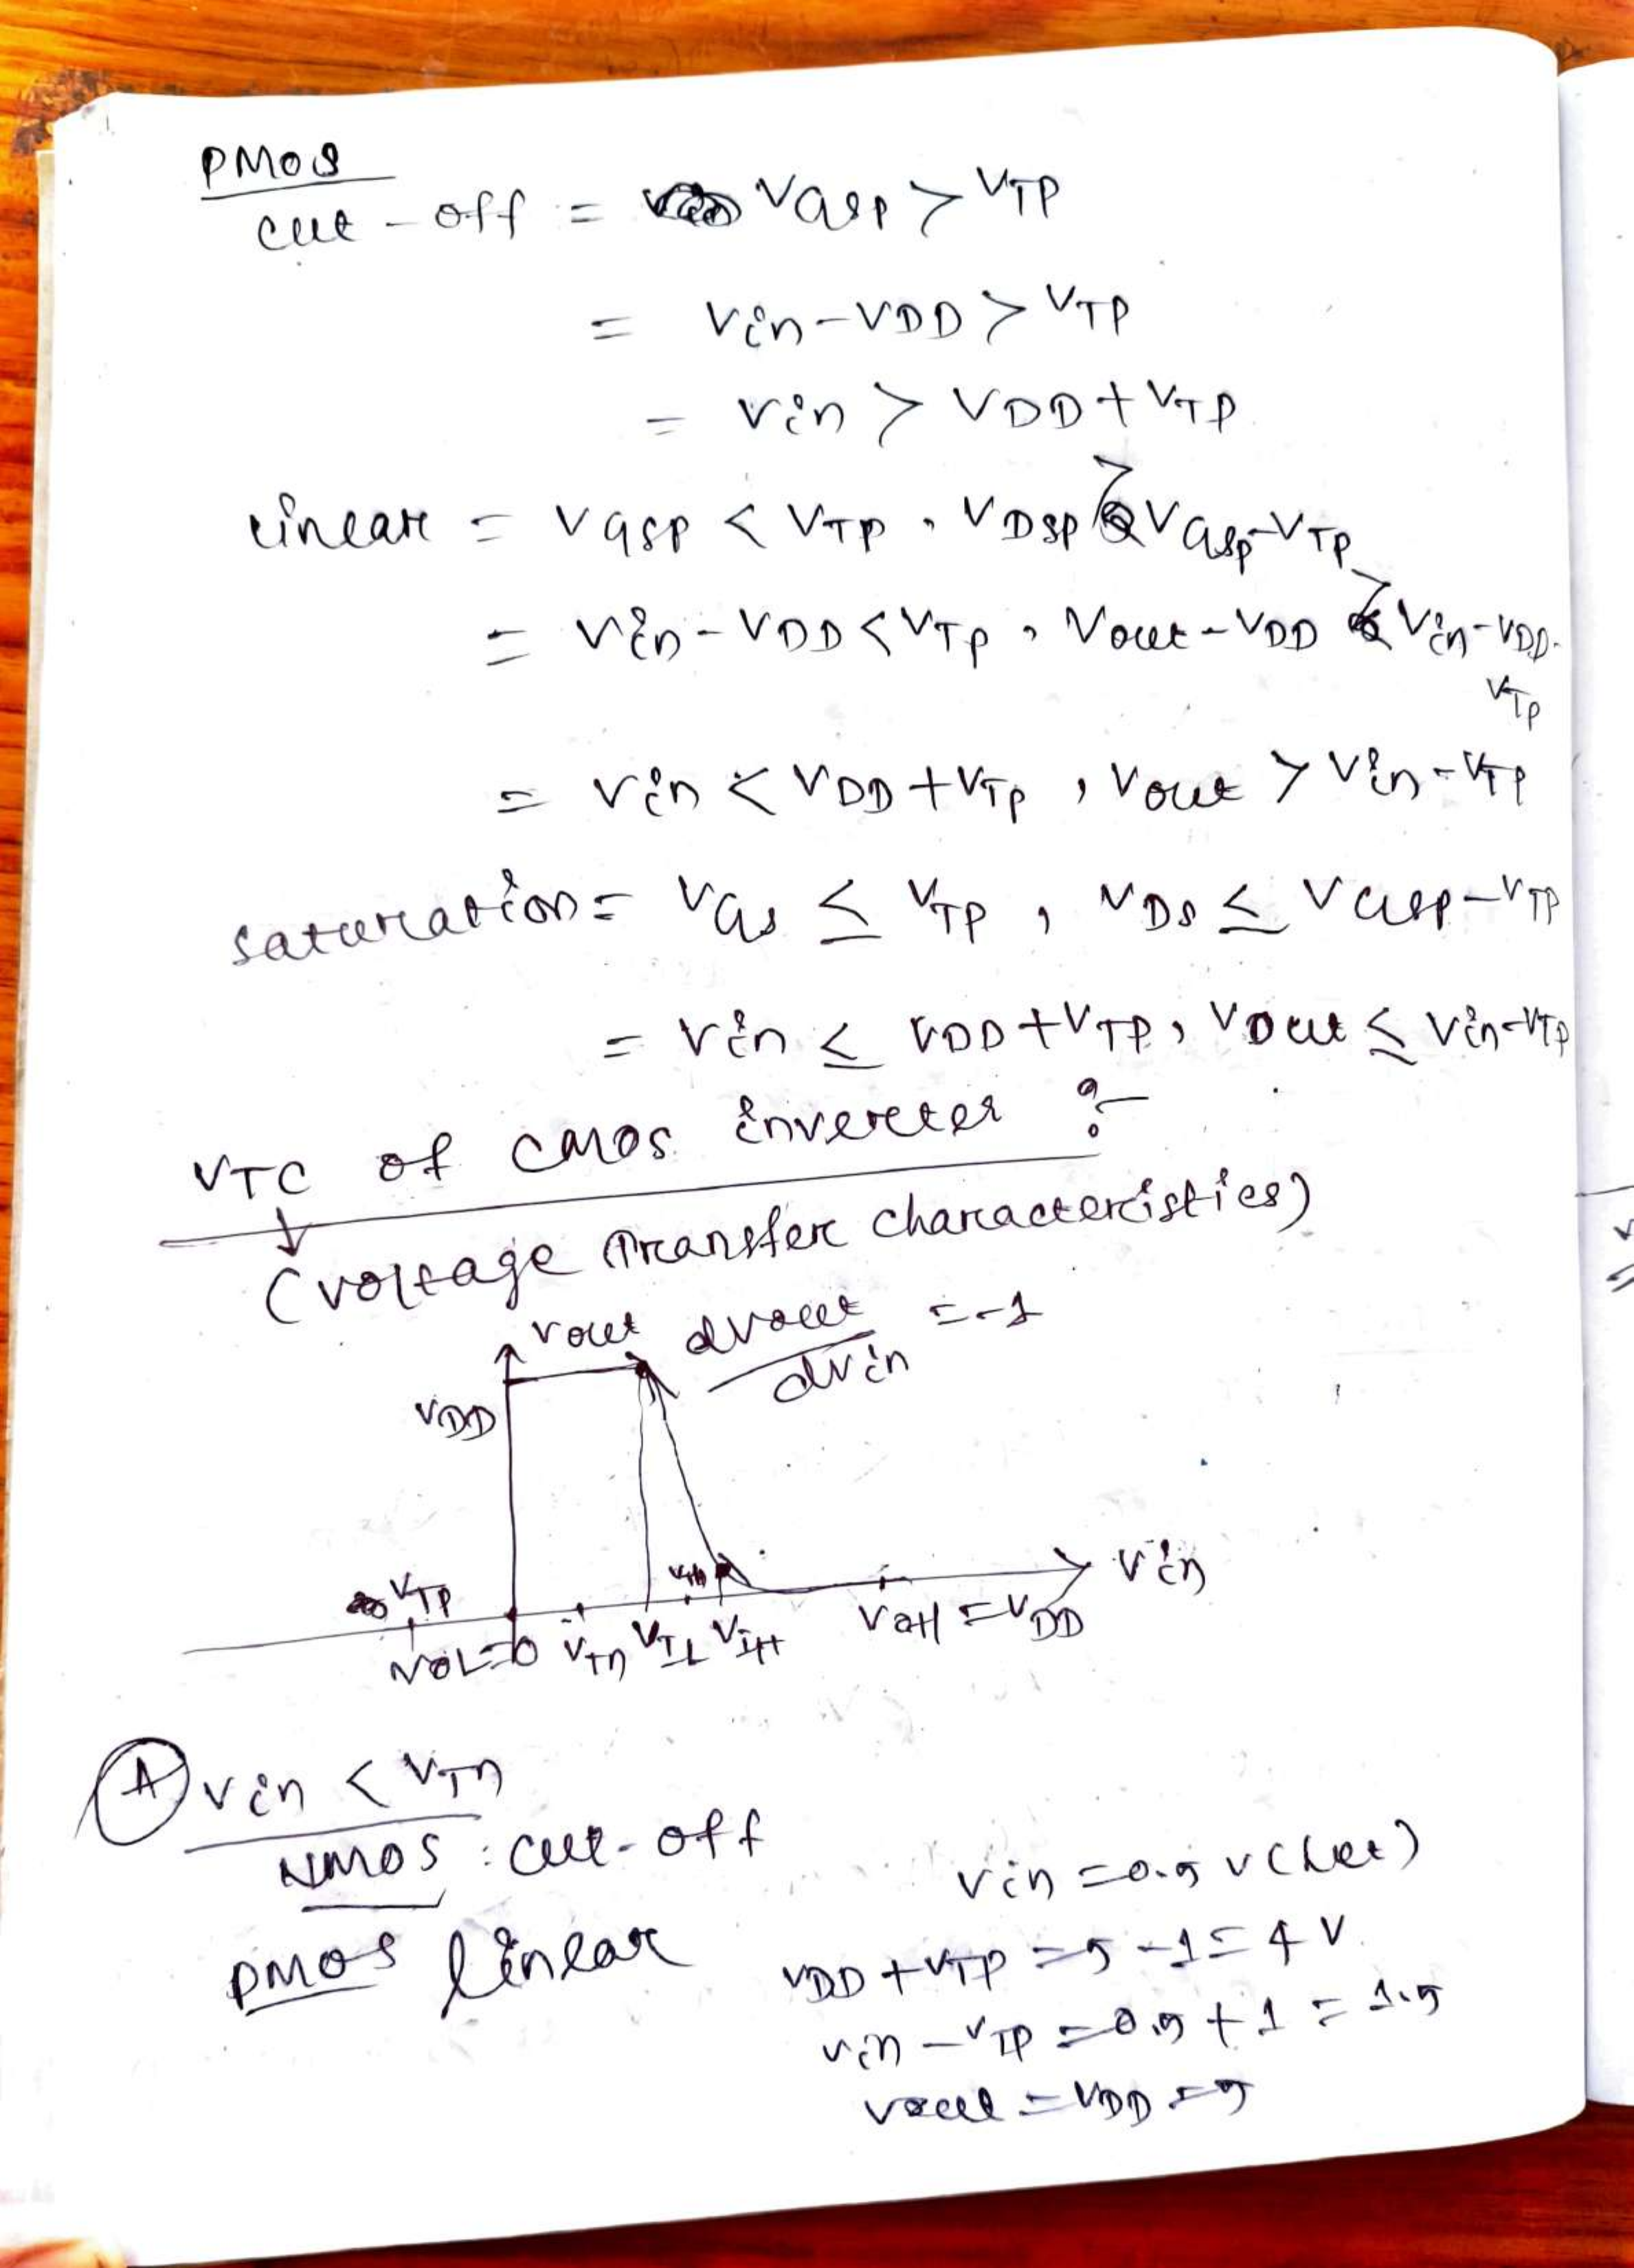 PMOS
cut-off = VGSP > VTP
= Vin-VDD > VTP
= Vin > VDD+VTP
linear = VGSP < VTP, VDSP > VGSP-VTP
= Vin-VDD < VTP, Vout-VDD > Vin-VDD-
VTP
= Vin < VDD+VTP, Vout > Vin-VTP
saturation = VGS ≤ VTP, VDS ≤ VGSP-VTP
= Vin ≤ VDD+VTP, Vout ≤ Vin-VTP
VTC of CMOS inverter :-
(voltage Transfer characteristics)
Vout dVout/dVin = -1
VDD
VTP Vth Vin
VOL=0 VTn VIL VIH VOH=VDD
A Vin < VTn
NMOS : cut-off
Vin = 0.5 V (Let)
PMOS linear
VDD+VTP = 5-1 = 4 V
Vin-VTP = 0.5+1 = 1.5
Vout = VDD = 5